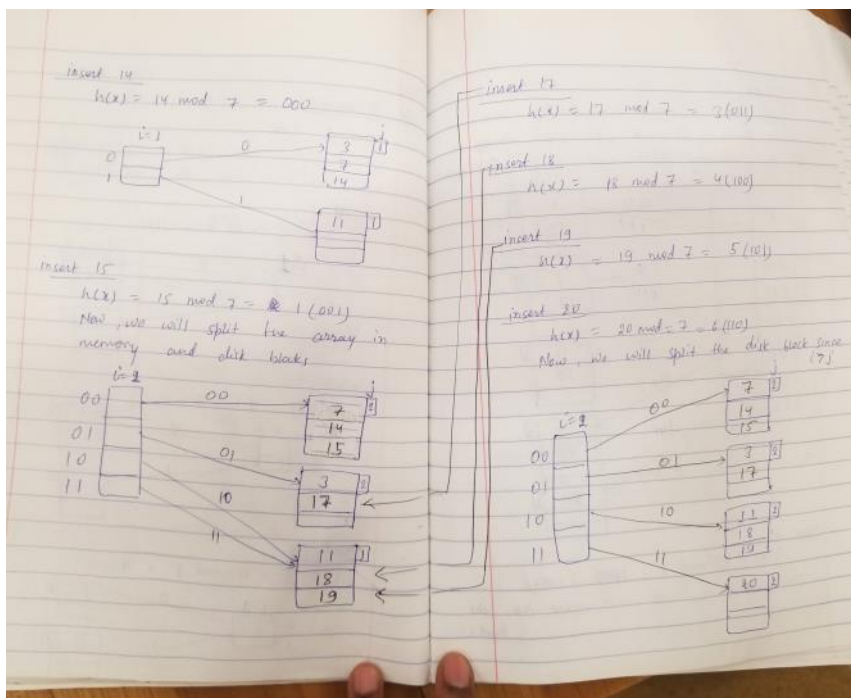 insert 14
h(x) = 14 mod 7 = 000
i=1
j
0
1
0
1
3
7
14
1
11
1
insert 15
h(x) = 15 mod 7 = 1 (001)
Now, we will split the array in
memory and disk blocks
i=2
j
00
01
10
11
00
01
10
11
7
14
15
2
3
17
2
11
18
19
1
insert 17
h(x) = 17 mod 7 = 3(011)
insert 18
h(x) = 18 mod 7 = 4(100)
insert 19
h(x) = 19 mod 7 = 5(101)
insert 20
h(x) = 20 mod = 7 = 6(110)
Now, we will split the disk block since
i>j
i=2
j
00
01
10
11
00
01
10
11
7
14
15
2
3
17
2
11
18
19
2
20
2